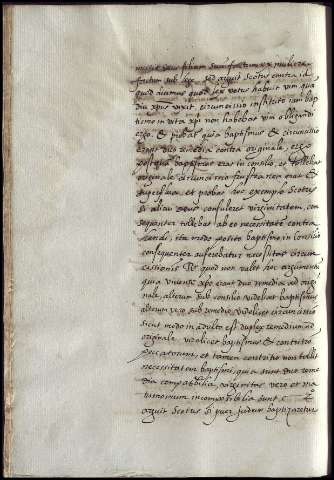 misit deus filium suum factum ex muliere
factum sub lege sed arguit Scotus contra id
quod diximus quod lex vetus habuit vim qua
diu xpus vixit, circumcisio instituto iam bap
tismo in vita xpi non habebat vim obligandi
ergo. & probat quia baptismus & circumcisio
erant duo remedia contra originale, ergo
postquam baptismus erat in consilio, et tollebat
originale circumcisio frustra iam erat &
superflua, et probat hoc exemplo Scotus
si alicui deus consuleret virginitatem, con
sequenter tollebat ab eo necessitatem contra
hendi, ita modo posito baptismo in consilio
consequenter auferebatur necessitas circum
cisionis Rx quod non valet hoc argumentum
quia vivente xpo erant duo remedia ad origi
nale, alterum sub consilio videlicet baptismus
alterum vero sub remedio videlicet circumcisio
sicut modo in adulto est duplex remedium ad
originale videlicet baptismus & contritio
peccatorum, et tamen contritio non tollit
necessitatem baptismi, quia sunt duo reme
dia compatibilia, virginitas vero et ma
trimonium incompatibilia sunt
arguit Scotus si puer iudeus baptizaretur